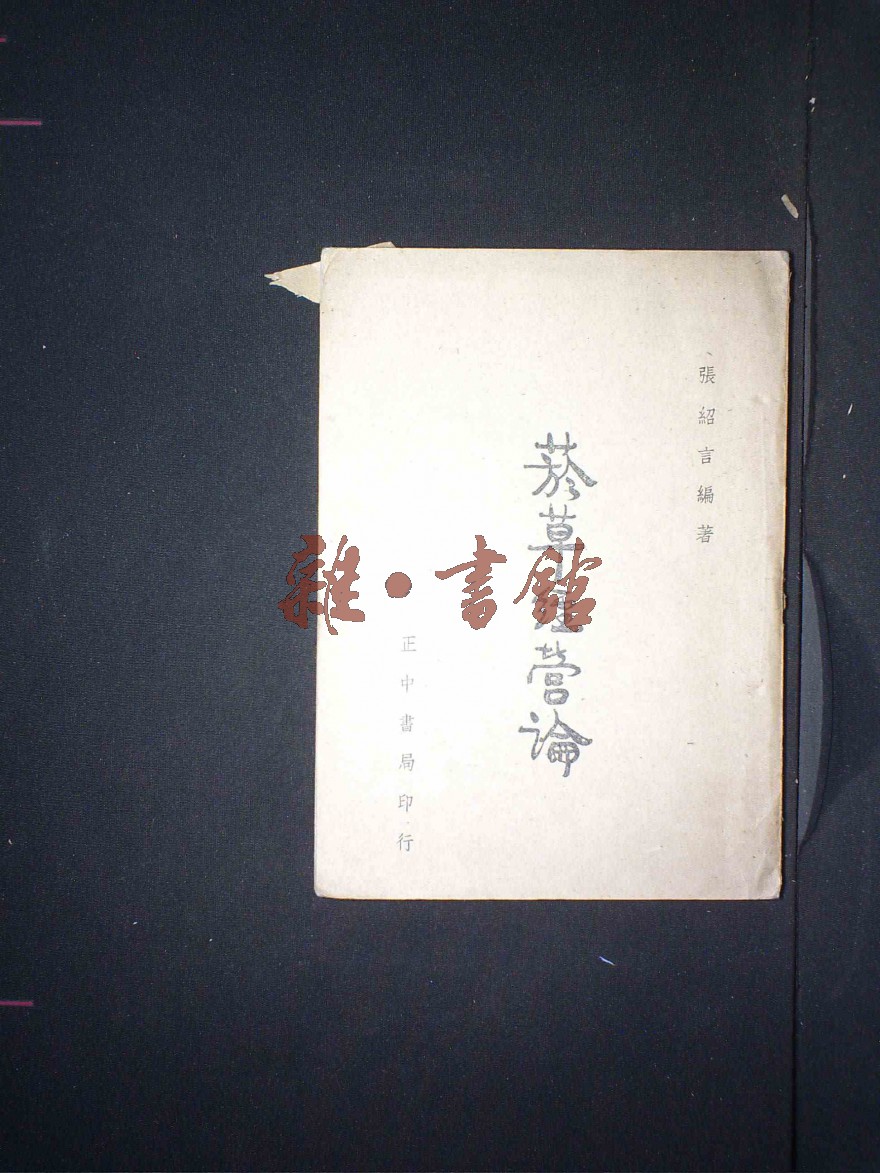 張紹言編著
菸草經營論
正中書局印行
雜·書館